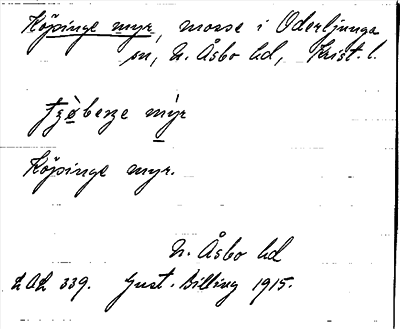 Köpinge myr, mosse i Oderljunga
sn, N. Åsbo hd, Krist. l.
myr
Köpinge myr.
N. Åsbo hd
LAL 339. Gust. Billing 1915.